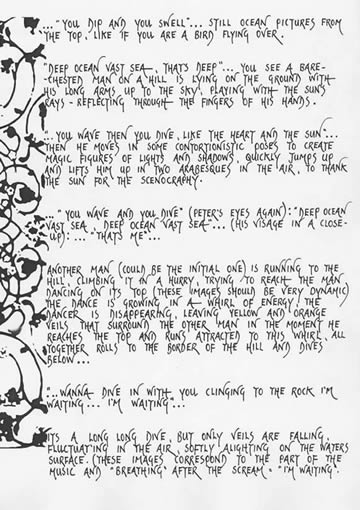 ..." YOU DIP AND YOU SWELL"... STILL OCEAN PICTURES FROM
THE TOP, LIKE IF YOU ARE A BIRD FLYING OVER.
"DEEP OCEAN VAST SEA, THAT'S DEEP"... YOU SEE A BARE-
CHESTED MAN ON A HILL IS LYING ON THE GROUND WITH
HIS LONG ARMS UP TO THE SKY, PLAYING WITH THE SUN'S
RAYS - REFLECTING THROUGH THE FINGERS OF HIS HANDS.
"...YOU WAVE THEN YOU DIVE, LIKE THE HEART AND THE SUN"...
THEN HE MOVES IN SOME CONTORTIONISTIC POSES TO CREATE
MAGIC FIGURES OF LIGHTS AND SHADOWS, QUICKLY JUMPS UP
AND LIFTS HIM UP IN TWO ARABESQUES IN THE AIR, TO THANK
THE SUN FOR THE SCENOGRAPHY.
..." YOU WAVE AND YOU DIVE" (PETER'S EYES AGAIN): "DEEP OCEAN
VAST SEA, DEEP OCEAN VAST SEA"... (HIS VISAGE IN A CLOSE-
UP): ... "THAT'S ME"...
ANOTHER MAN (COULD BE THE INITIAL ONE) IS RUNNING TO THE
HILL, CLIMBING IT IN A HURRY, TRYING TO REACH THE MAN
DANCING ON ITS TOP (THESE IMAGES SHOULD BE VERY DYNAMIC)
THE DANCE IS GROWING IN A WHIRL OF ENERGY, THE
DANCER IS DISAPPEARING, LEAVING YELLOW AND ORANGE
VEILS THAT SURROUND THE OTHER MAN IN THE MOMENT HE
REACHES THE TOP AND RUNS ATTRACTED TO THIS WHIRL, ALL
TOGETHER ROLLS TO THE BORDER OF THE HILL AND DIVES
BELOW...
"...WANNA DIVE IN WITH YOU CLINGING TO THE ROCK I'M
WAITING... I'M WAITING"...
ITS A LONG LONG DIVE, BUT ONLY VEILS ARE FALLING,
FLUCTUATING IN THE AIR, SOFTLY ALIGHTING ON THE WATERS
SURFACE. (THESE IMAGES CORRESPOND TO THE PART OF THE
MUSIC AND "BREATHING" AFTER THE SCREAM = "I'M WAITING".